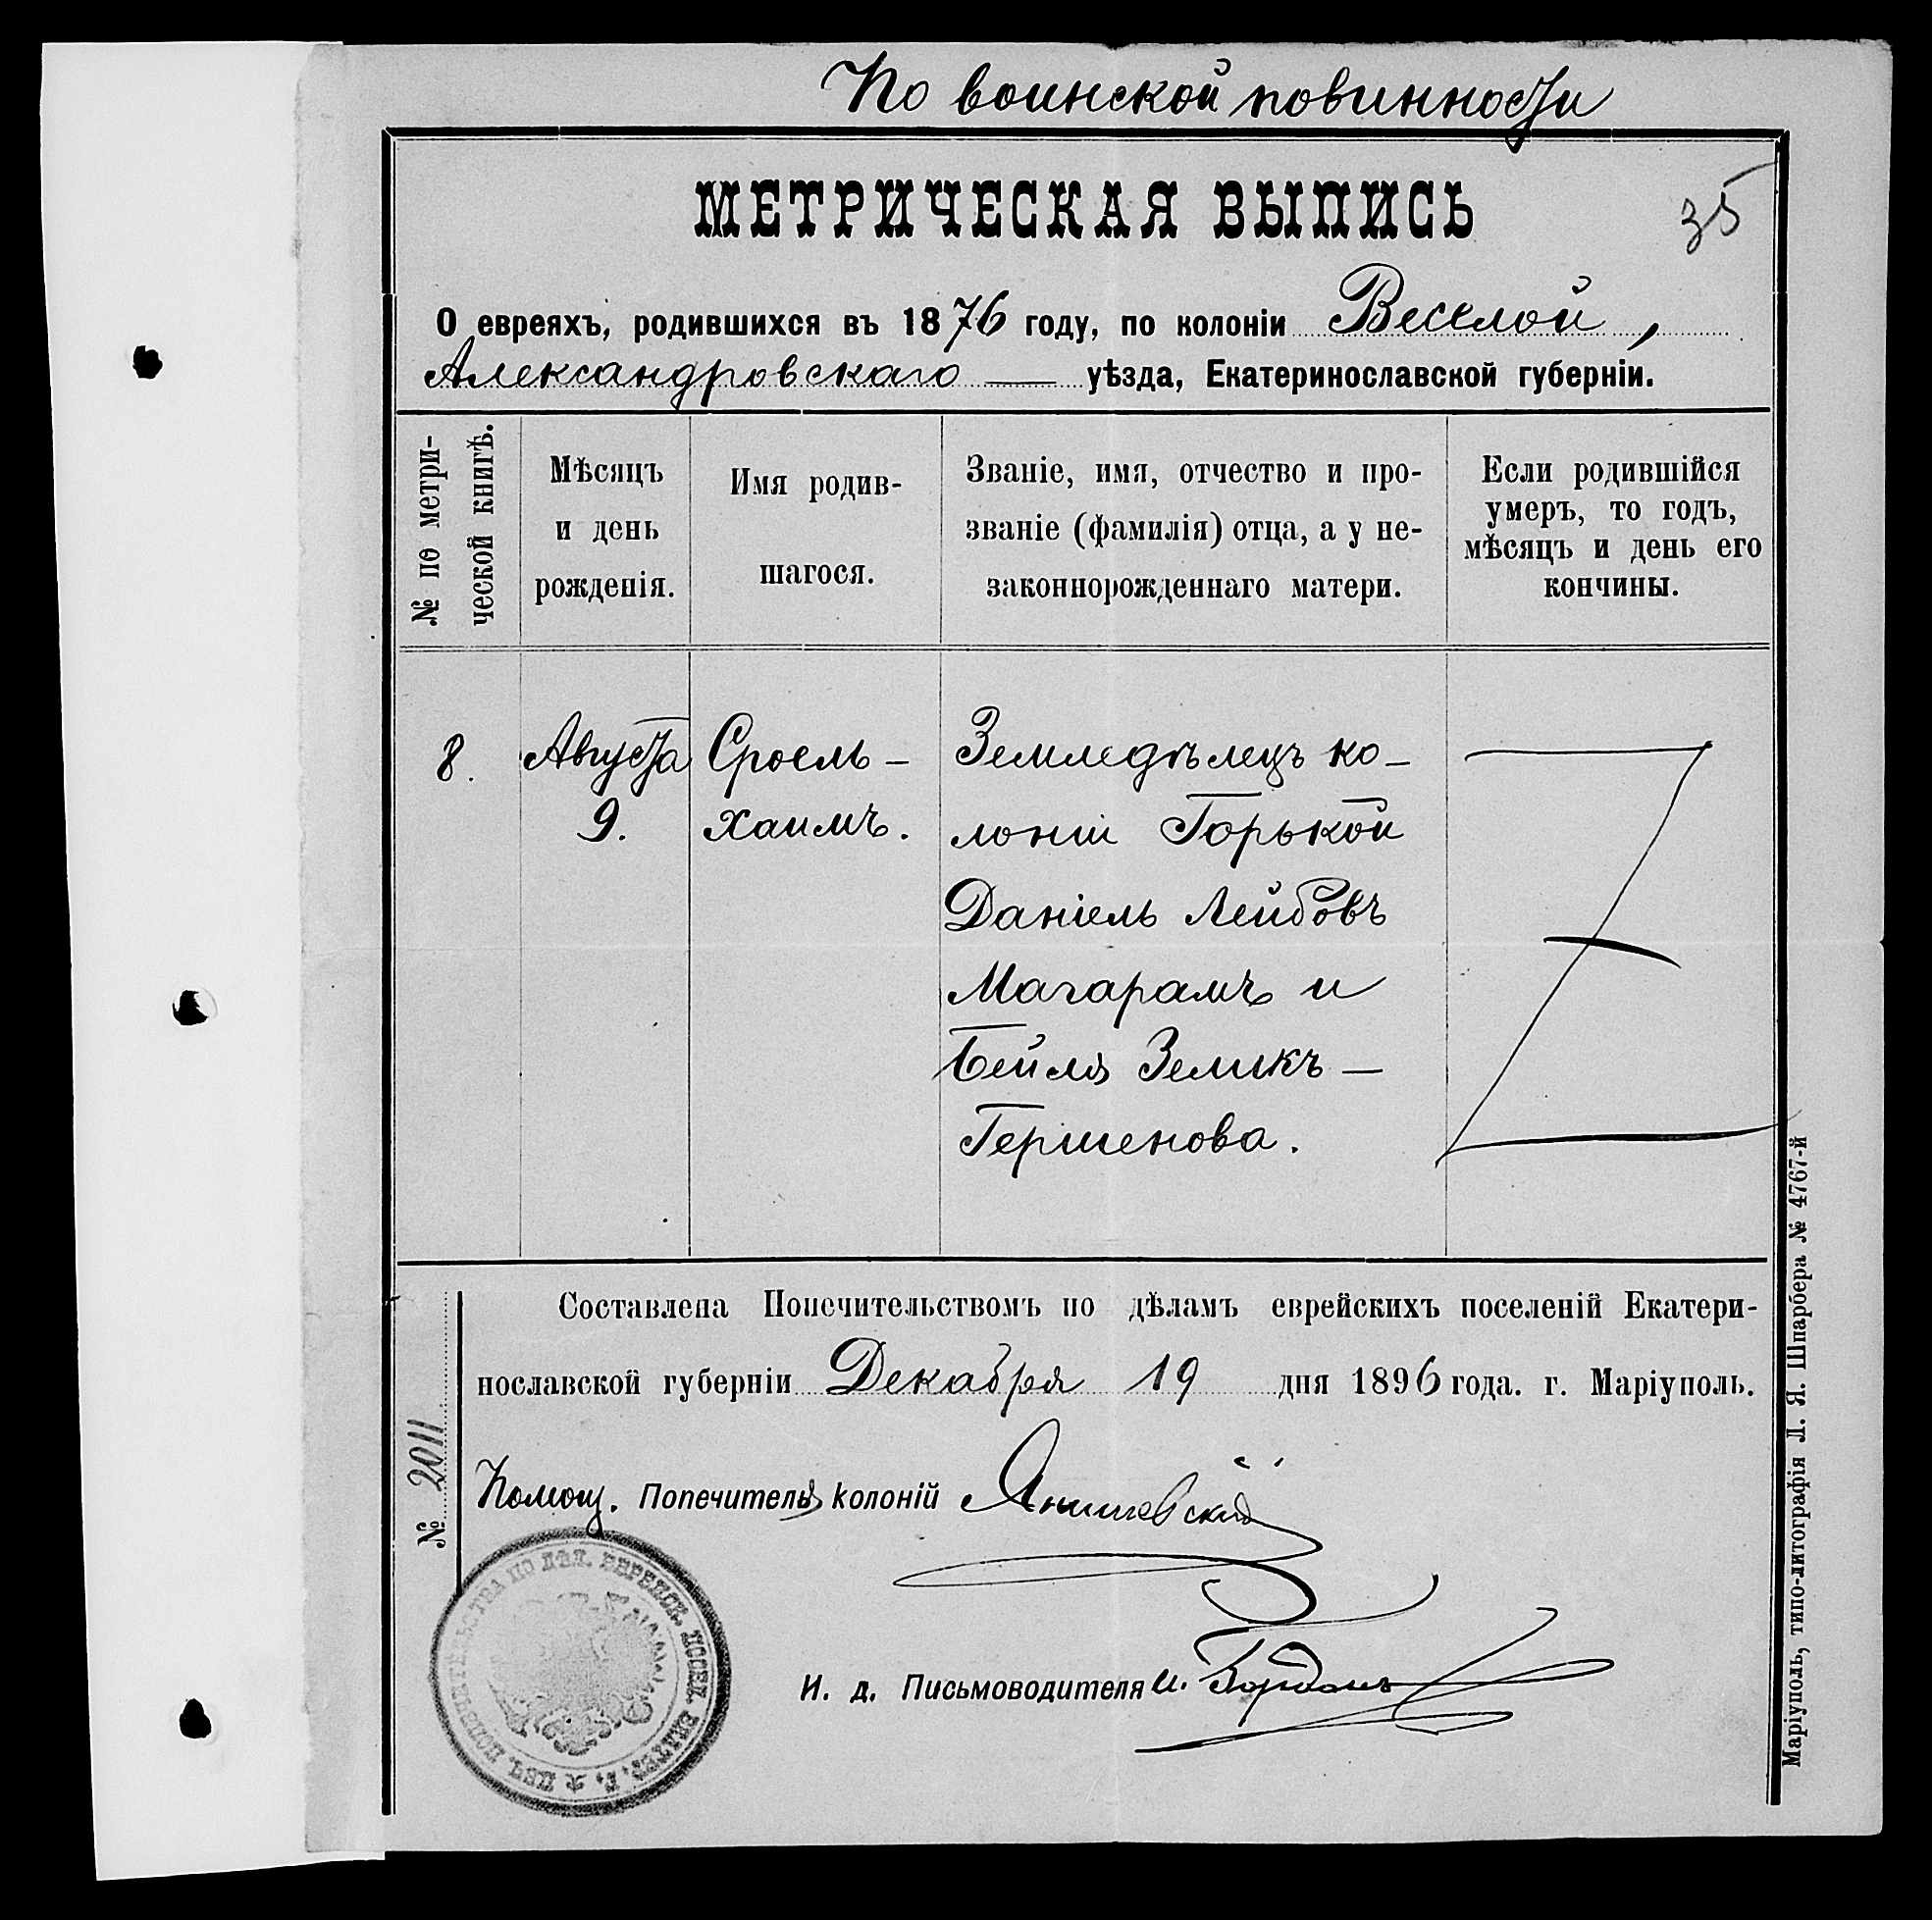 По воинской повинности
МЕТРИЧЕСКАЯ ВЫПИСЬ
35
О евреяхъ, родившихся въ 1876 году, по колоніи Веселой,
Александровскаго — уѣзда, Екатеринославской губерніи.
№ по метри-
ческой книгѣ.
Мѣсяцъ
и день
рожденія.
Имя родив-
шагося.
Званіе, имя, отчество и про-
званіе (фамилія) отца, а у не-
законнорожденнаго матери.
Если родившійся
умеръ, то годъ,
мѣсяцъ и день его
кончины.
8.
Августа
9.
Сроель-
хаимъ.
Земледѣлецъ ко-
лоніи Горькой
Даніель Лейбовъ
Магарамъ и
Бейля Зеликъ-
Гершенова.
Составлена Попечительствомъ по дѣламъ еврейскихъ поселеній Екатери-
нославской губерніи Декабря 19 дня 1896 года. г. Маріуполь.
№ 2011
Помощ. Попечителя колоній Янишевскій
И. д. Письмоводителя И.
ПЕЧ. ПОПЕЧИТЕЛЬСТВА ПО ДѢЛ. ЕВРЕЙСК. ПОСЕЛ. ЕКАТЕР. Г.
Маріуполь, типо-литографія Л. Я. Шпарбера № 4767-й